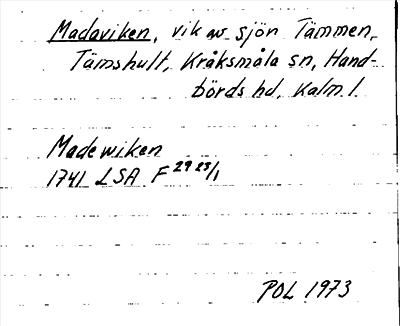 Madaviken, vik av sjön Tämmen,
Tämshult, Kråksmåla sn, Hand-
börds hd, Kalm. l.
Madewiken
1741 LSA F 29 23/1
POL 1973